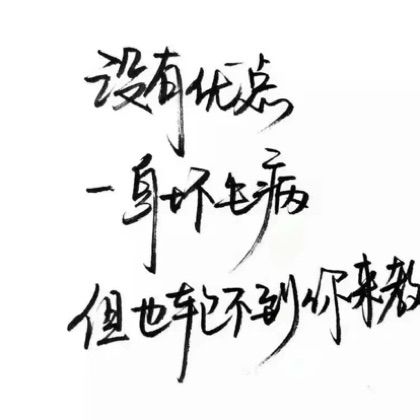 没有优点
一身坏毛病
但也轮不到你来教